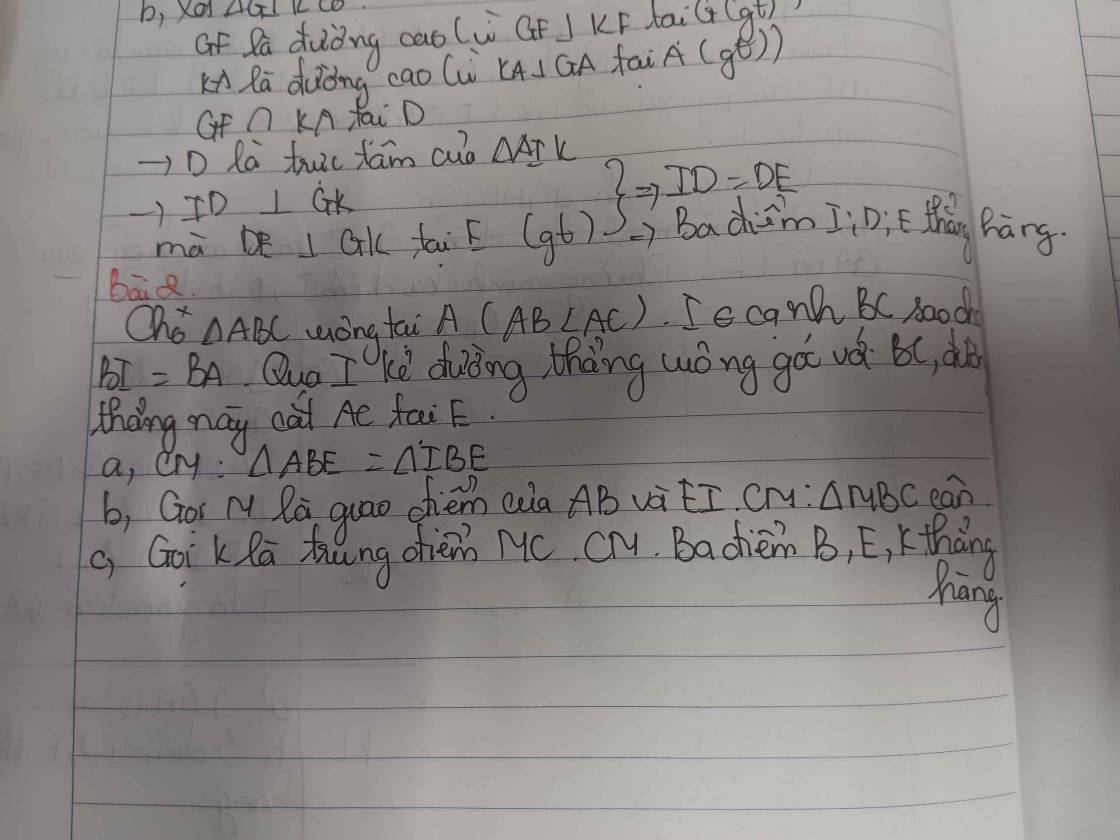 b, Xét ΔGIK có:
GF là đường cao (vì GF ⊥ KF tại (gt)
KA là đường cao (vì KA ⊥ GA tại A (gt))
GF ∩ KA tại D
→ D là trực tâm của ΔAIK
→ ID ⊥ GK } ⇒ ID = DE
mà DE ⊥ GK tại E (gt) ⇒ Ba điểm I; D; E thẳng hàng.
Bài 2.
Cho ΔABC vuông tại A (AB < AC). I ∈ cạnh BC sao ch
BI = BA. Qua I kẻ đường thẳng vuông góc với BC, đườ
thẳng này cắt AC tại E.
a, CM: ΔABE = ΔIBE
b, Gọi M là giao điểm của AB và EI. CM: ΔMBC cân.
c, Gọi K là trung điểm MC. CM. Ba điểm B, E, K thẳng
hàng.